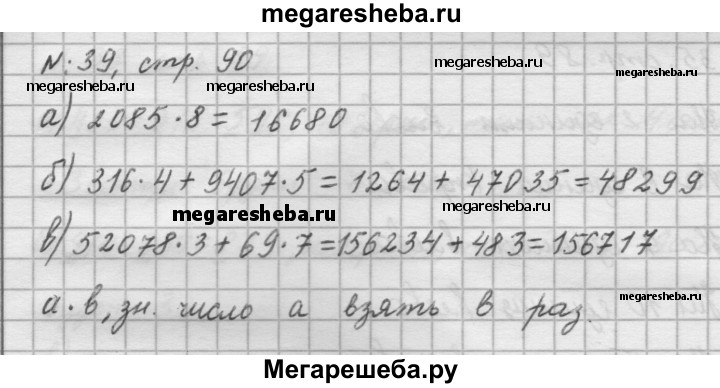 megaresheba.ru
N: 39, стр. 90
megaresheba.ru
megaresheba.ru
megaresheba.ru
а) 2085·8= 16680
б) 316·4+9407·5=1264+47035=48299
megaresheba.ru
megaresheba.ru
megaresheba.ru
в) 52078·3+69·7=156234+483=156717
megaresheba.ru
а·в, зн. число а взять в раз.
Мегарешеба.ру